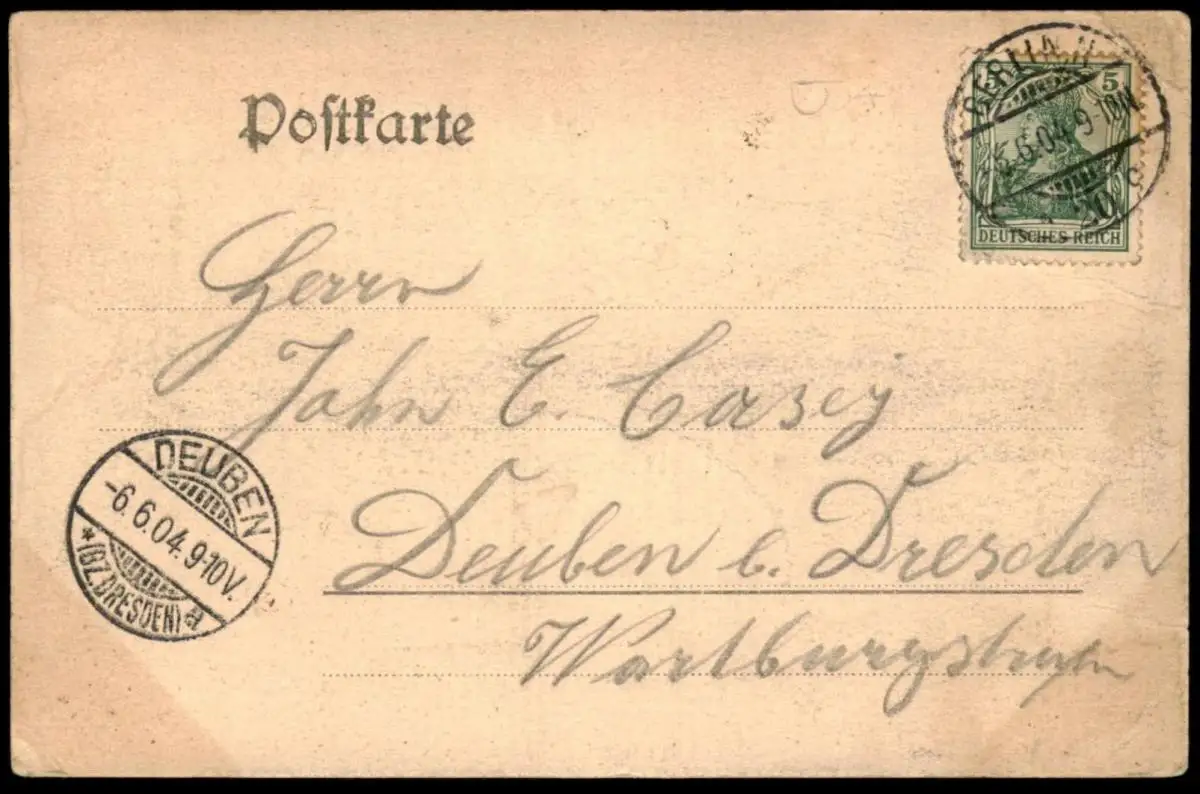 Postkarte
BERLIN N
5 5
6.04 9-10N.
DEUTSCHES REICH
Herrn
John E. Casey
Deuben b. Dresden
DEUBEN
-6.6.04.9-10V.
*(BZ.DRESDEN) a